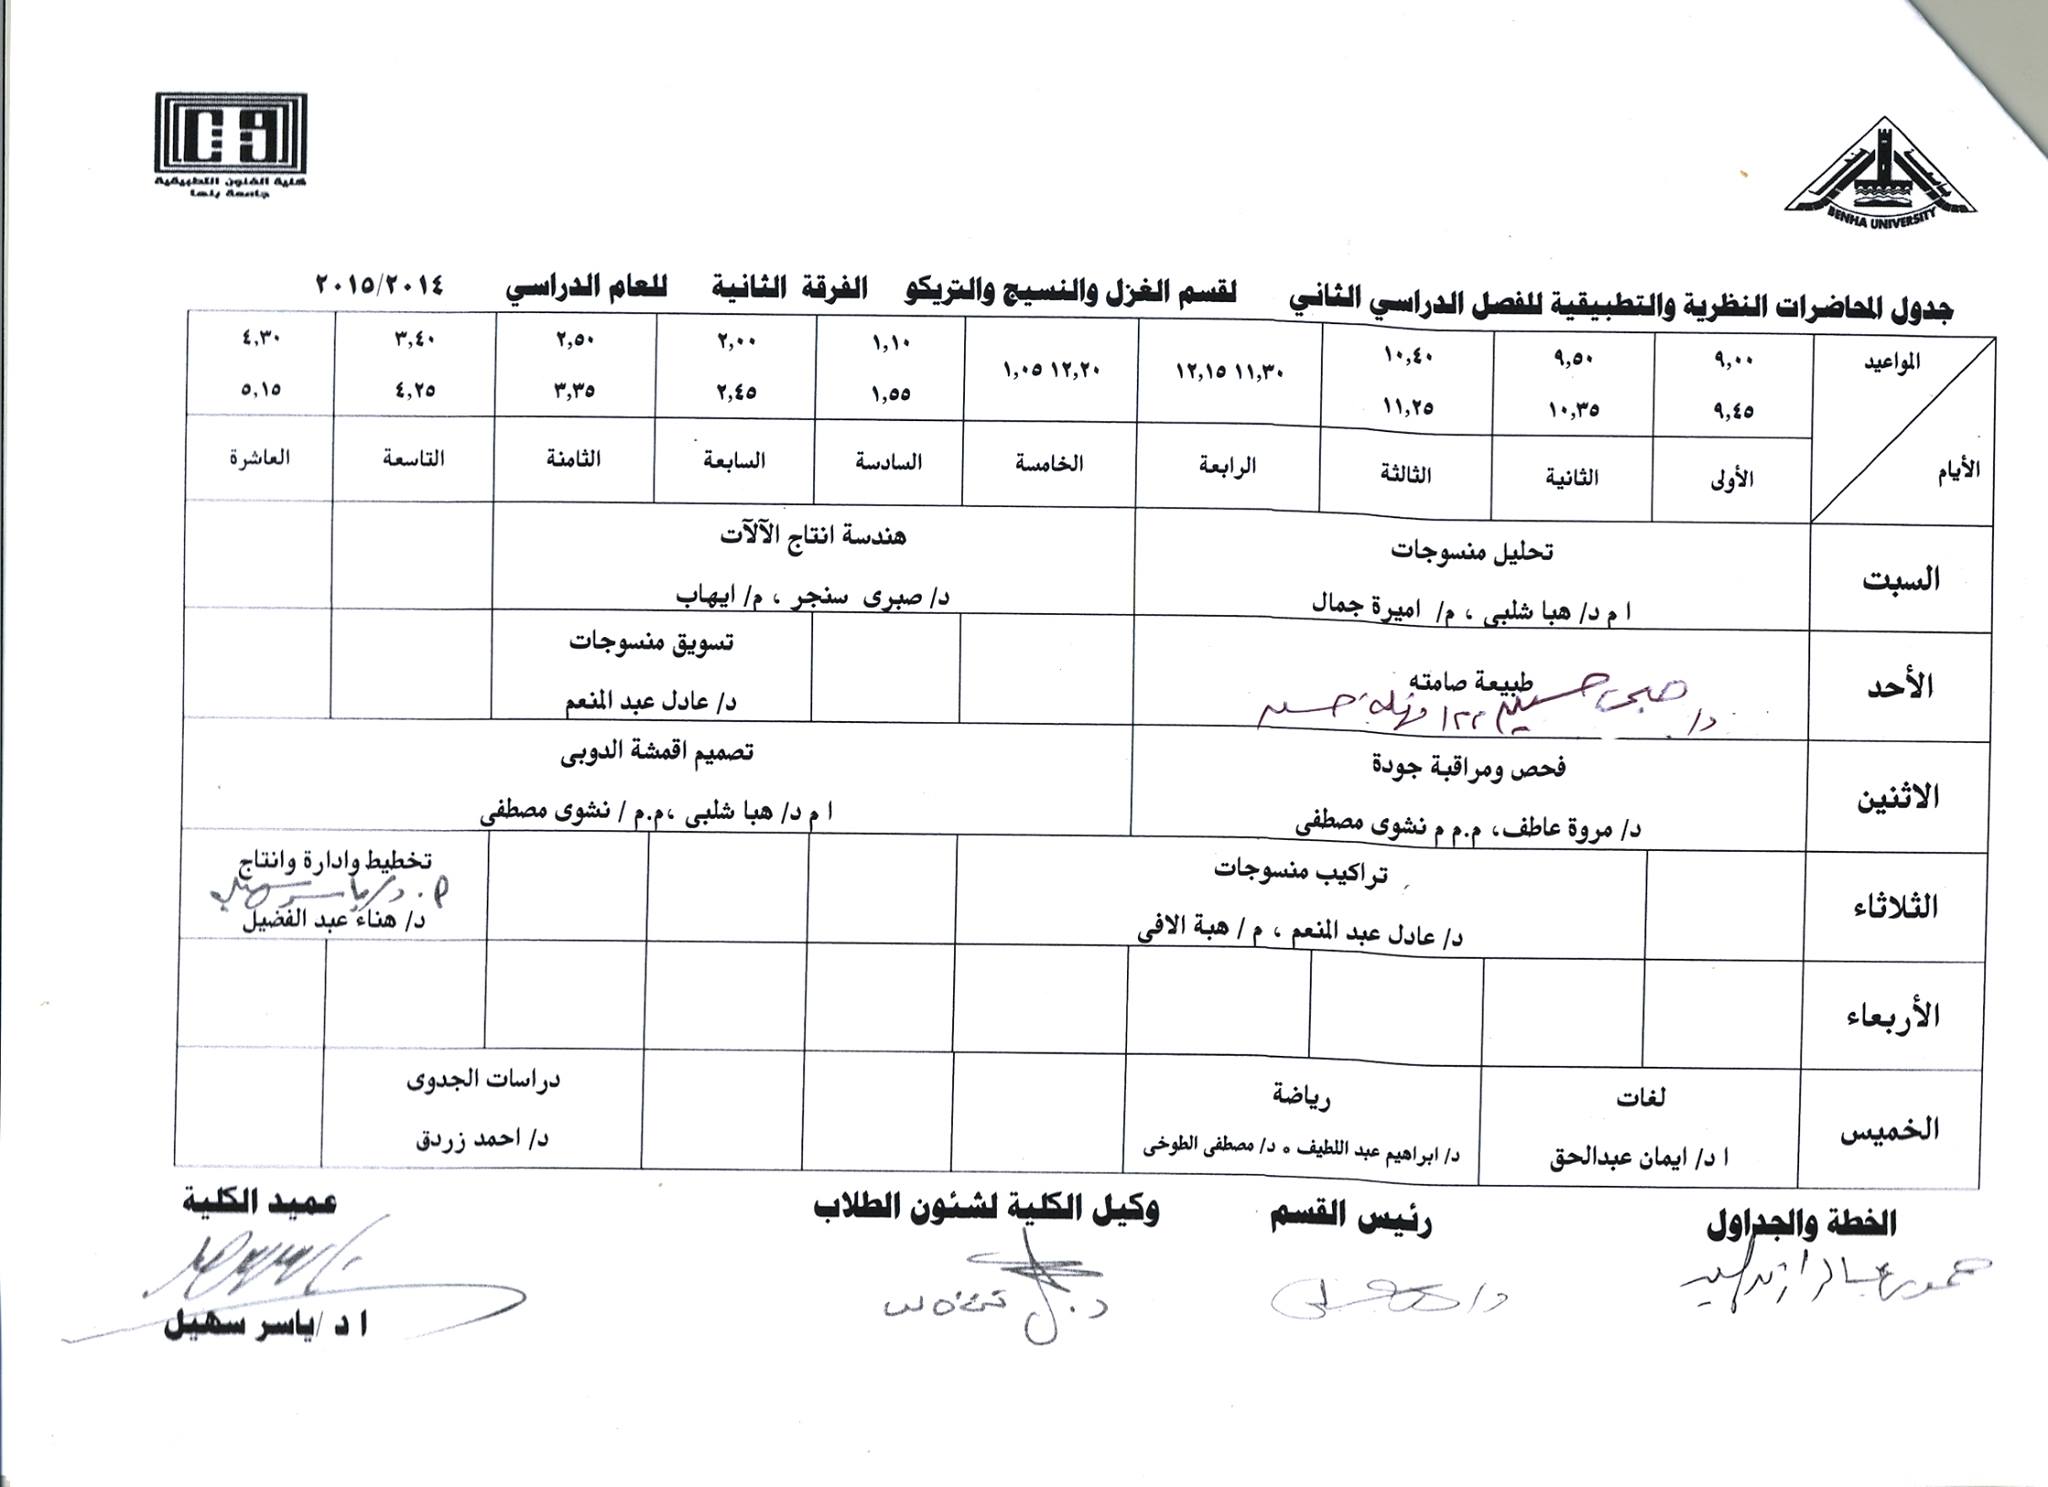 كلية الفنون التطبيقية
جامعة بنها
BENHA UNIVERSITY
جدول المحاضرات النظرية والتطبيقية للفصل الدراسي الثاني لقسم الغزل والنسيج والتريكو الفرقة الثانية للعام الدراسي ٢٠١٥/٢٠١٤
المواعيد ٩,٠٠ ٩,٥٠ ١٠,٤٠ ١١,٣٠ ١٢,١٥ ١٢,٢٠ ١,٠٥ ١,١٠ ٢,٠٠ ٢,٥٠ ٣,٤٠ ٤,٣٠
٩,٤٥ ١٠,٣٥ ١١,٢٥ ١,٥٥ ٢,٤٥ ٣,٣٥ ٤,٢٥ ٥,١٥
الأيام الأولى الثانية الثالثة الرابعة الخامسة السادسة السابعة الثامنة التاسعة العاشرة
السبت
تحليل منسوجات
ا م د/ هبا شلبى ، م/ اميرة جمال
هندسة انتاج الآلآت
د/ صبرى سنجر ، م/ ايهاب
الأحد
طبيعة صامته
تسويق منسوجات
د/ عادل عبد المنعم
الاثنين
فحص ومراقبة جودة
د/ مروة عاطف، م.م م نشوى مصطفى
تصميم اقمشة الدوبى
ا م د/ هبا شلبى ،م.م / نشوى مصطفى
الثلاثاء
تراكيب منسوجات
د/ عادل عبد المنعم ، م / هبة الافى
تخطيط وادارة وانتاج
د/ هناء عبد الفضيل
الأربعاء
الخميس
لغات
ا د/ ايمان عبدالحق
رياضة
د/ ابراهيم عبد اللطيف ٥ د/ مصطفى الطوخى
دراسات الجدوى
د/ احمد زردق
الخطة والجداول رئيس القسم وكيل الكلية لشئون الطلاب عميد الكلية
ا د /ياسر سهيل